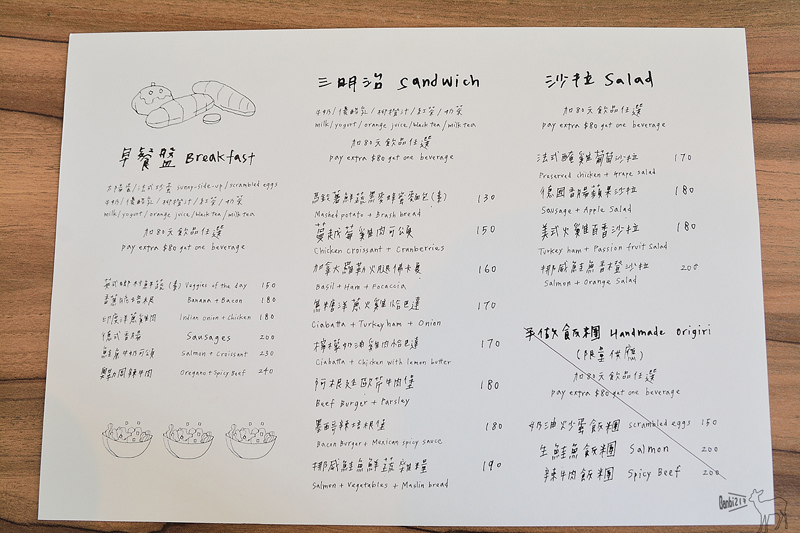 早餐盤 Breakfast
太陽蛋/法式炒蛋 sunny-side-up/scrambled eggs
牛奶/優酪乳/柳橙汁/紅茶/奶茶
milk/yogurt/orange juice/black tea/milk tea
加80元飲品任選
pay extra $80 get one beverage
英式鄉村鮮蔬(素) Veggies of the day 150
香蕉奶培根 Banana + Bacon 180
印度洋蔥雞肉 Indian onion + Chicken 180
德式香腸 Sausages 200
鮭魚牛奶可頌 Salmon + Croissant 230
奧勒岡辣牛肉 Oregano + Spicy Beef 240
三明治 Sandwich
牛奶/優酪乳/柳橙汁/紅茶/奶茶
milk/yogurt/orange juice/black tea/milk tea
加80元飲品任選
pay extra $80 get one beverage
馬鈴薯鮮蔬蕎麥蜂蜜麵包(素) 130
Mashed potato + Brash bread
蔓越莓雞肉可頌 150
Chicken Croissant + Cranberries
加拿大羅勒火腿佛卡夏 160
Basil + Ham + Focaccia
焦糖洋蔥火雞恰巴達 170
Ciabatta + Turkey ham + Onion
檸檬奶油雞肉恰巴達 170
Ciabatta + Chicken with lemon butter
阿根廷歐芹牛肉堡 180
Beef Burger + Parsley
墨西哥辣培根堡 180
Bacon Burger + Mexican spicy sauce
挪威鮭魚鮮蔬雜糧 190
Salmon + Vegetables + Maslin bread
沙拉 Salad
加80元飲品任選
pay extra $80 get one beverage
法式醃雞葡萄沙拉 170
Preserved chicken + Grape salad
德國香腸蘋果沙拉 180
Sausage + Apple Salad
美式火雞百香沙拉 180
Turkey ham + Passion fruit Salad
挪威鮭魚香橙沙拉 200
Salmon + Orange Salad
手做飯糰 Handmade Origiri
(限量供應)
加80元飲品任選
pay extra $80 get one beverage
奶油炒蛋飯糰 scrambled eggs 150
生鮭魚飯糰 Salmon 200
辣牛肉飯糰 Spicy Beef 200
Banbi217